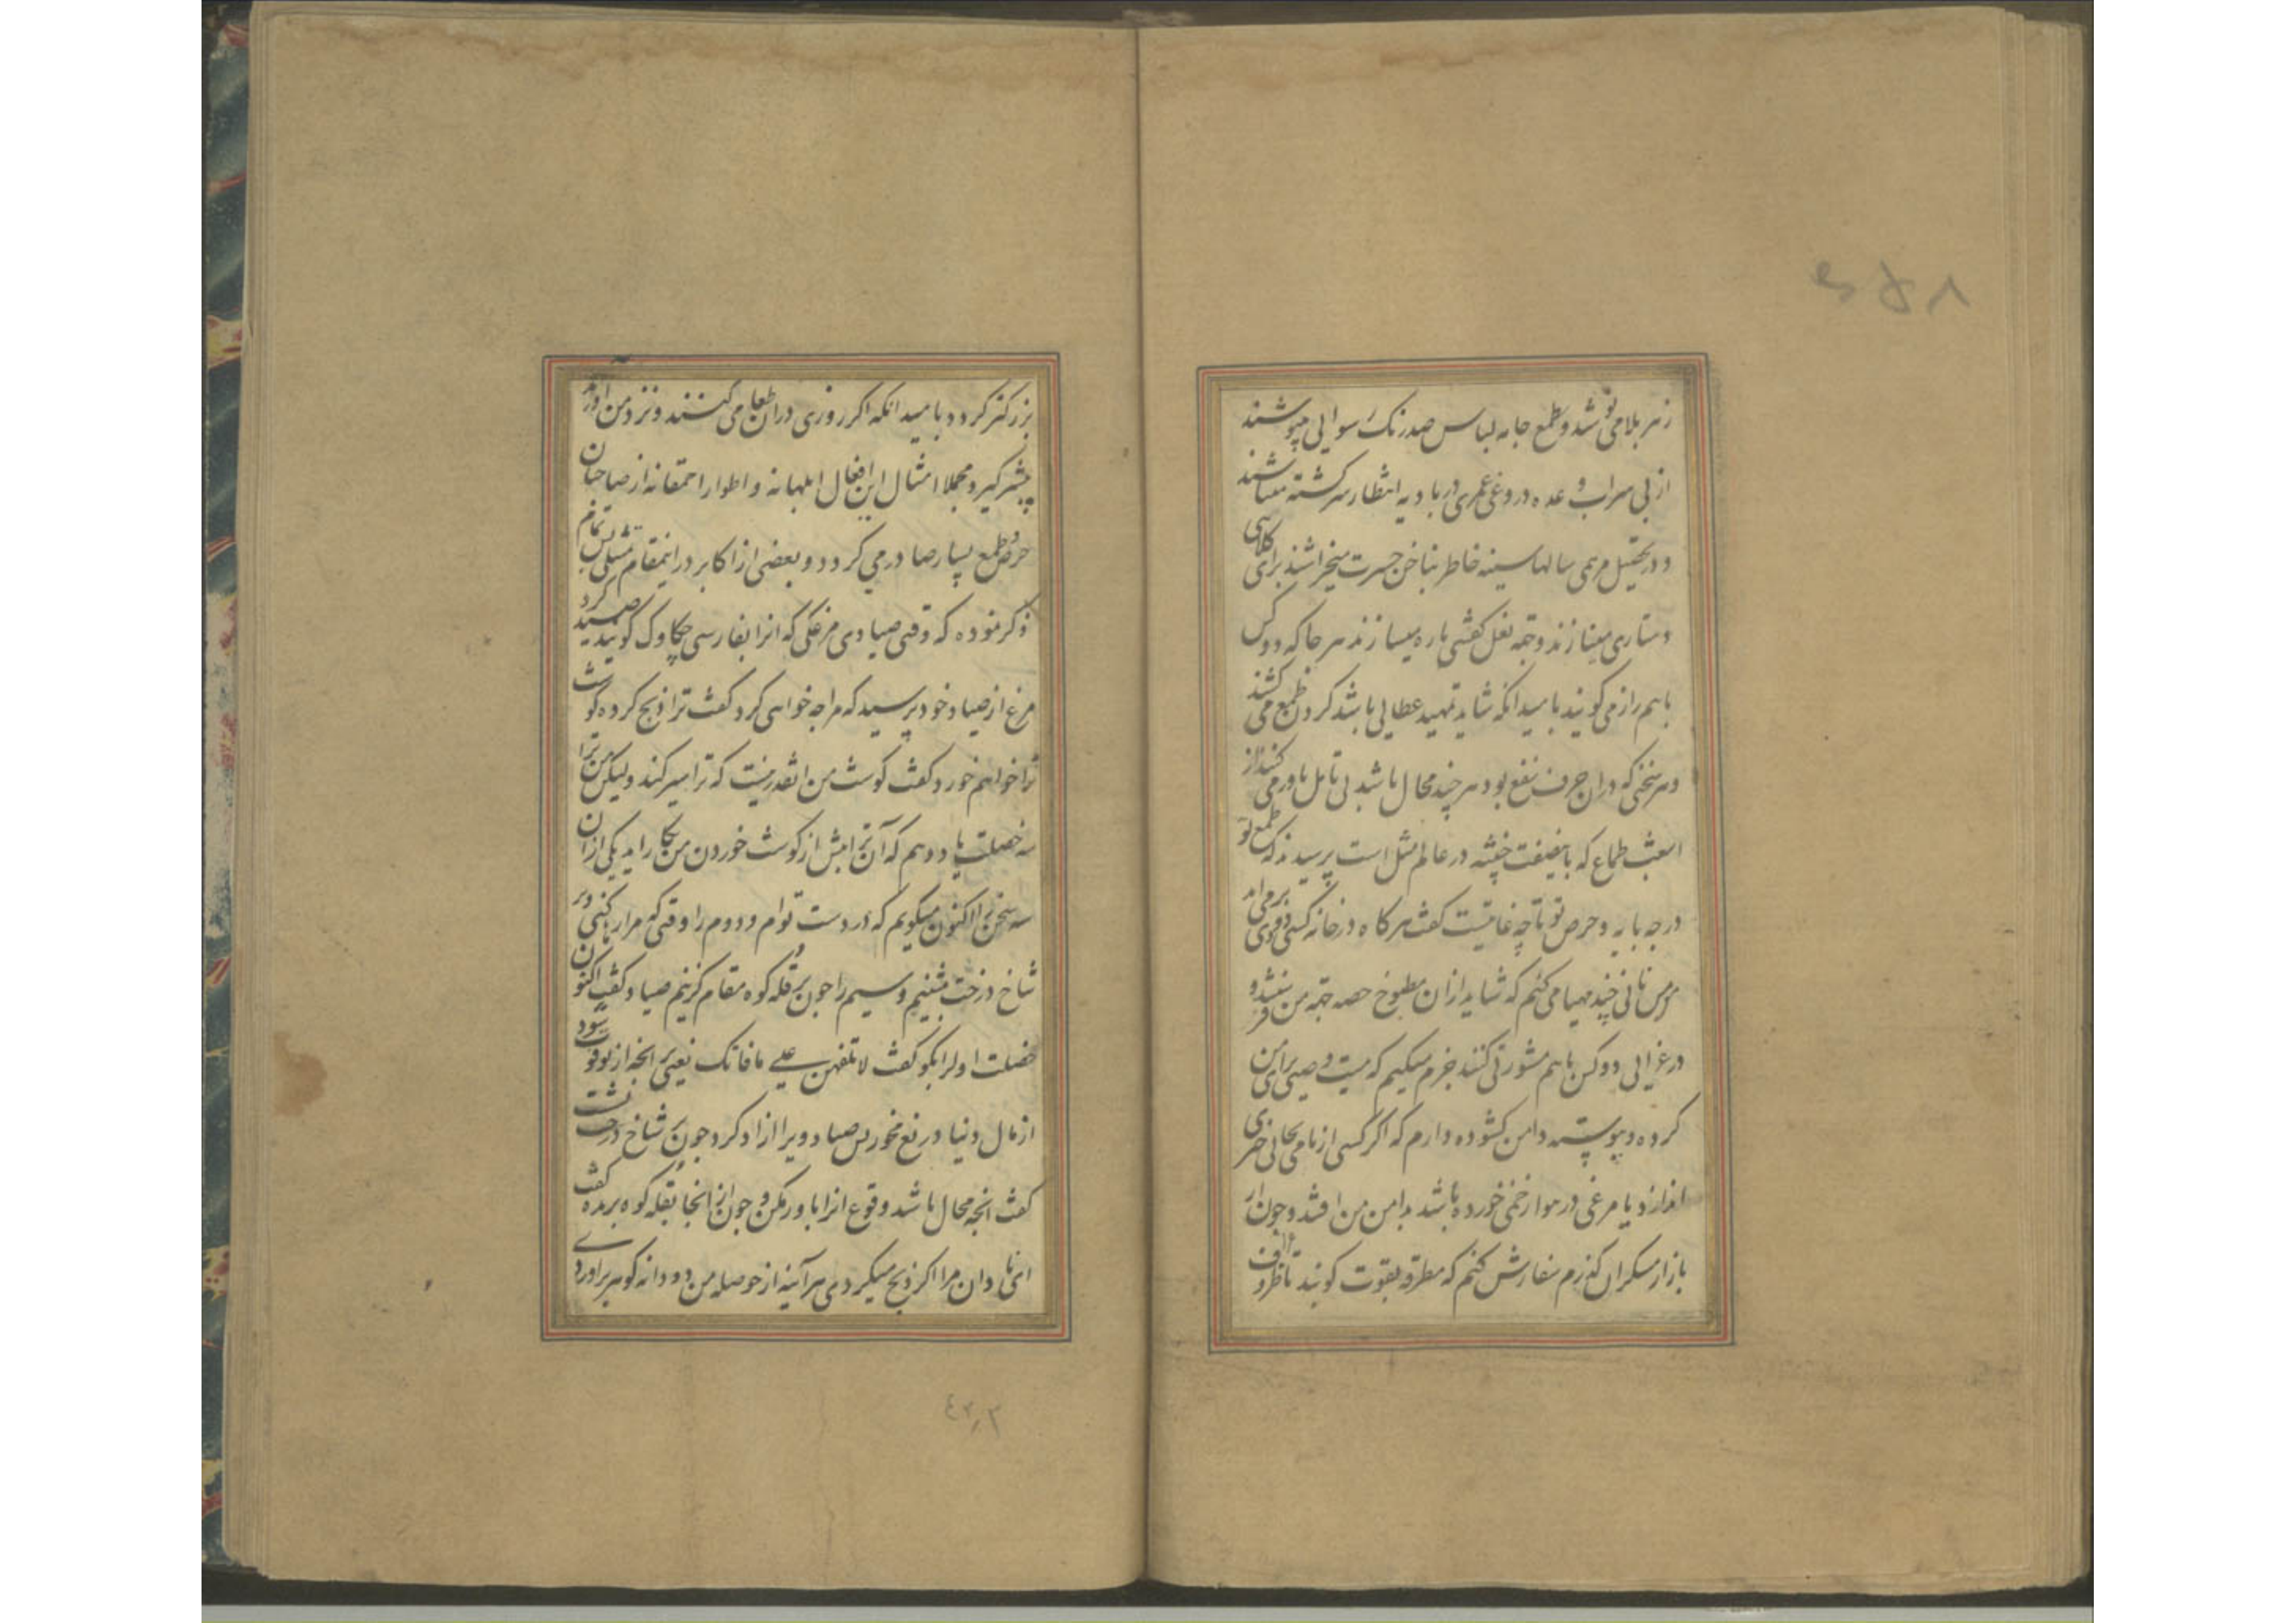 زهر بلا می نوشند و بطمع جامه لباس صد رنک رسوایی میپوشند
از پی سراب وعده دروغی عمری در بادیه انتظار سرکشته میباشند
و در تحصیل مرهمی سالها سینه خاطر بناخن حسرت میخراشند برای کلاهی
دستاری میبازند و جهة نعل کفشی پاره میسازند هر جا که دو کس
باهم راز می کویند بامید انکه شاید تمهید عطایی باشد کردن طمع می کشند
و هر سخنی که دران حرف نفع بود هر چند محال باشد بی تامل باور می کنند از
اشعث طماع که باینصفت خبیثه در عالم مثل است پرسیدند که طمع تو
در چه پایه و حرص تو تا چه غایتست کفت هر کاه در خانه کسی دودی بر می اید
من نانی چند مهیا می کنم که شاید ازان مطبوخ حصه جهة من بفرستند و
در غزایی دو کس باهم مشورتی کنند جزم میکنم که میت وصیتی برای من
کرده و پیوسته دامن کشوده دارم که اکر کسی از بامی بجایی چیزی
اندازد یا مرغی در هوا زخمی خورده باشد بدامن من افتد و چون از
بازار مسکران کذرم سفارش کنم که مطرقه بقوت کوبند تا ظروف
بزرکتر کردد بامید انکه اکر روزی دران طعامی کنند و نزد من اورند
بیشتر کیرد مجملا امثال این افعال ابلهانه و اطوار احمقانه از صاحبان
حرص و طمع بسیار صادر می کردد و بعضی از اکابر در اینمقام مثلی بس تمام
ذکر نموده که وقتی صیادی مرغکی که انرا بفارسی چکاوک کویند صید کرد
مرغ از صیاد خود پرسید که مرا چه خواهی کرد کفت ترا ذبح کرده کوشت
ترا خواهم خورد کفت کوشت من انقدر نیست که ترا سیر کند ولیکن من ترا
سه خصلت یاد دهم که آن ترا بیش از کوشت خوردن من بکار اید یکی ازان
سه سخن را اکنون میکویم که در دست توام و دوم را وقتی که مرا رها کنی و بر
شاخ درخت نشینم و سیم را چون بر قله کوه مقام کزینم صیاد کفت اکنون
خصلت اول را بکو کفت لا تلهفن علی ما فاتک یعنی بر انچه از تو فوت شود
از مال دنیا دریغ مخور پس صیاد ویرا ازاد کرد چون بر شاخ درخت نشست
کفت انچه محال باشد وقوع انرا باور مکن و چون از انجا بقله کوه پریده کفت
ای نادان مرا اکر ذبح میکردی هر آینه از حوصله من دو دانه کوهر براوردی